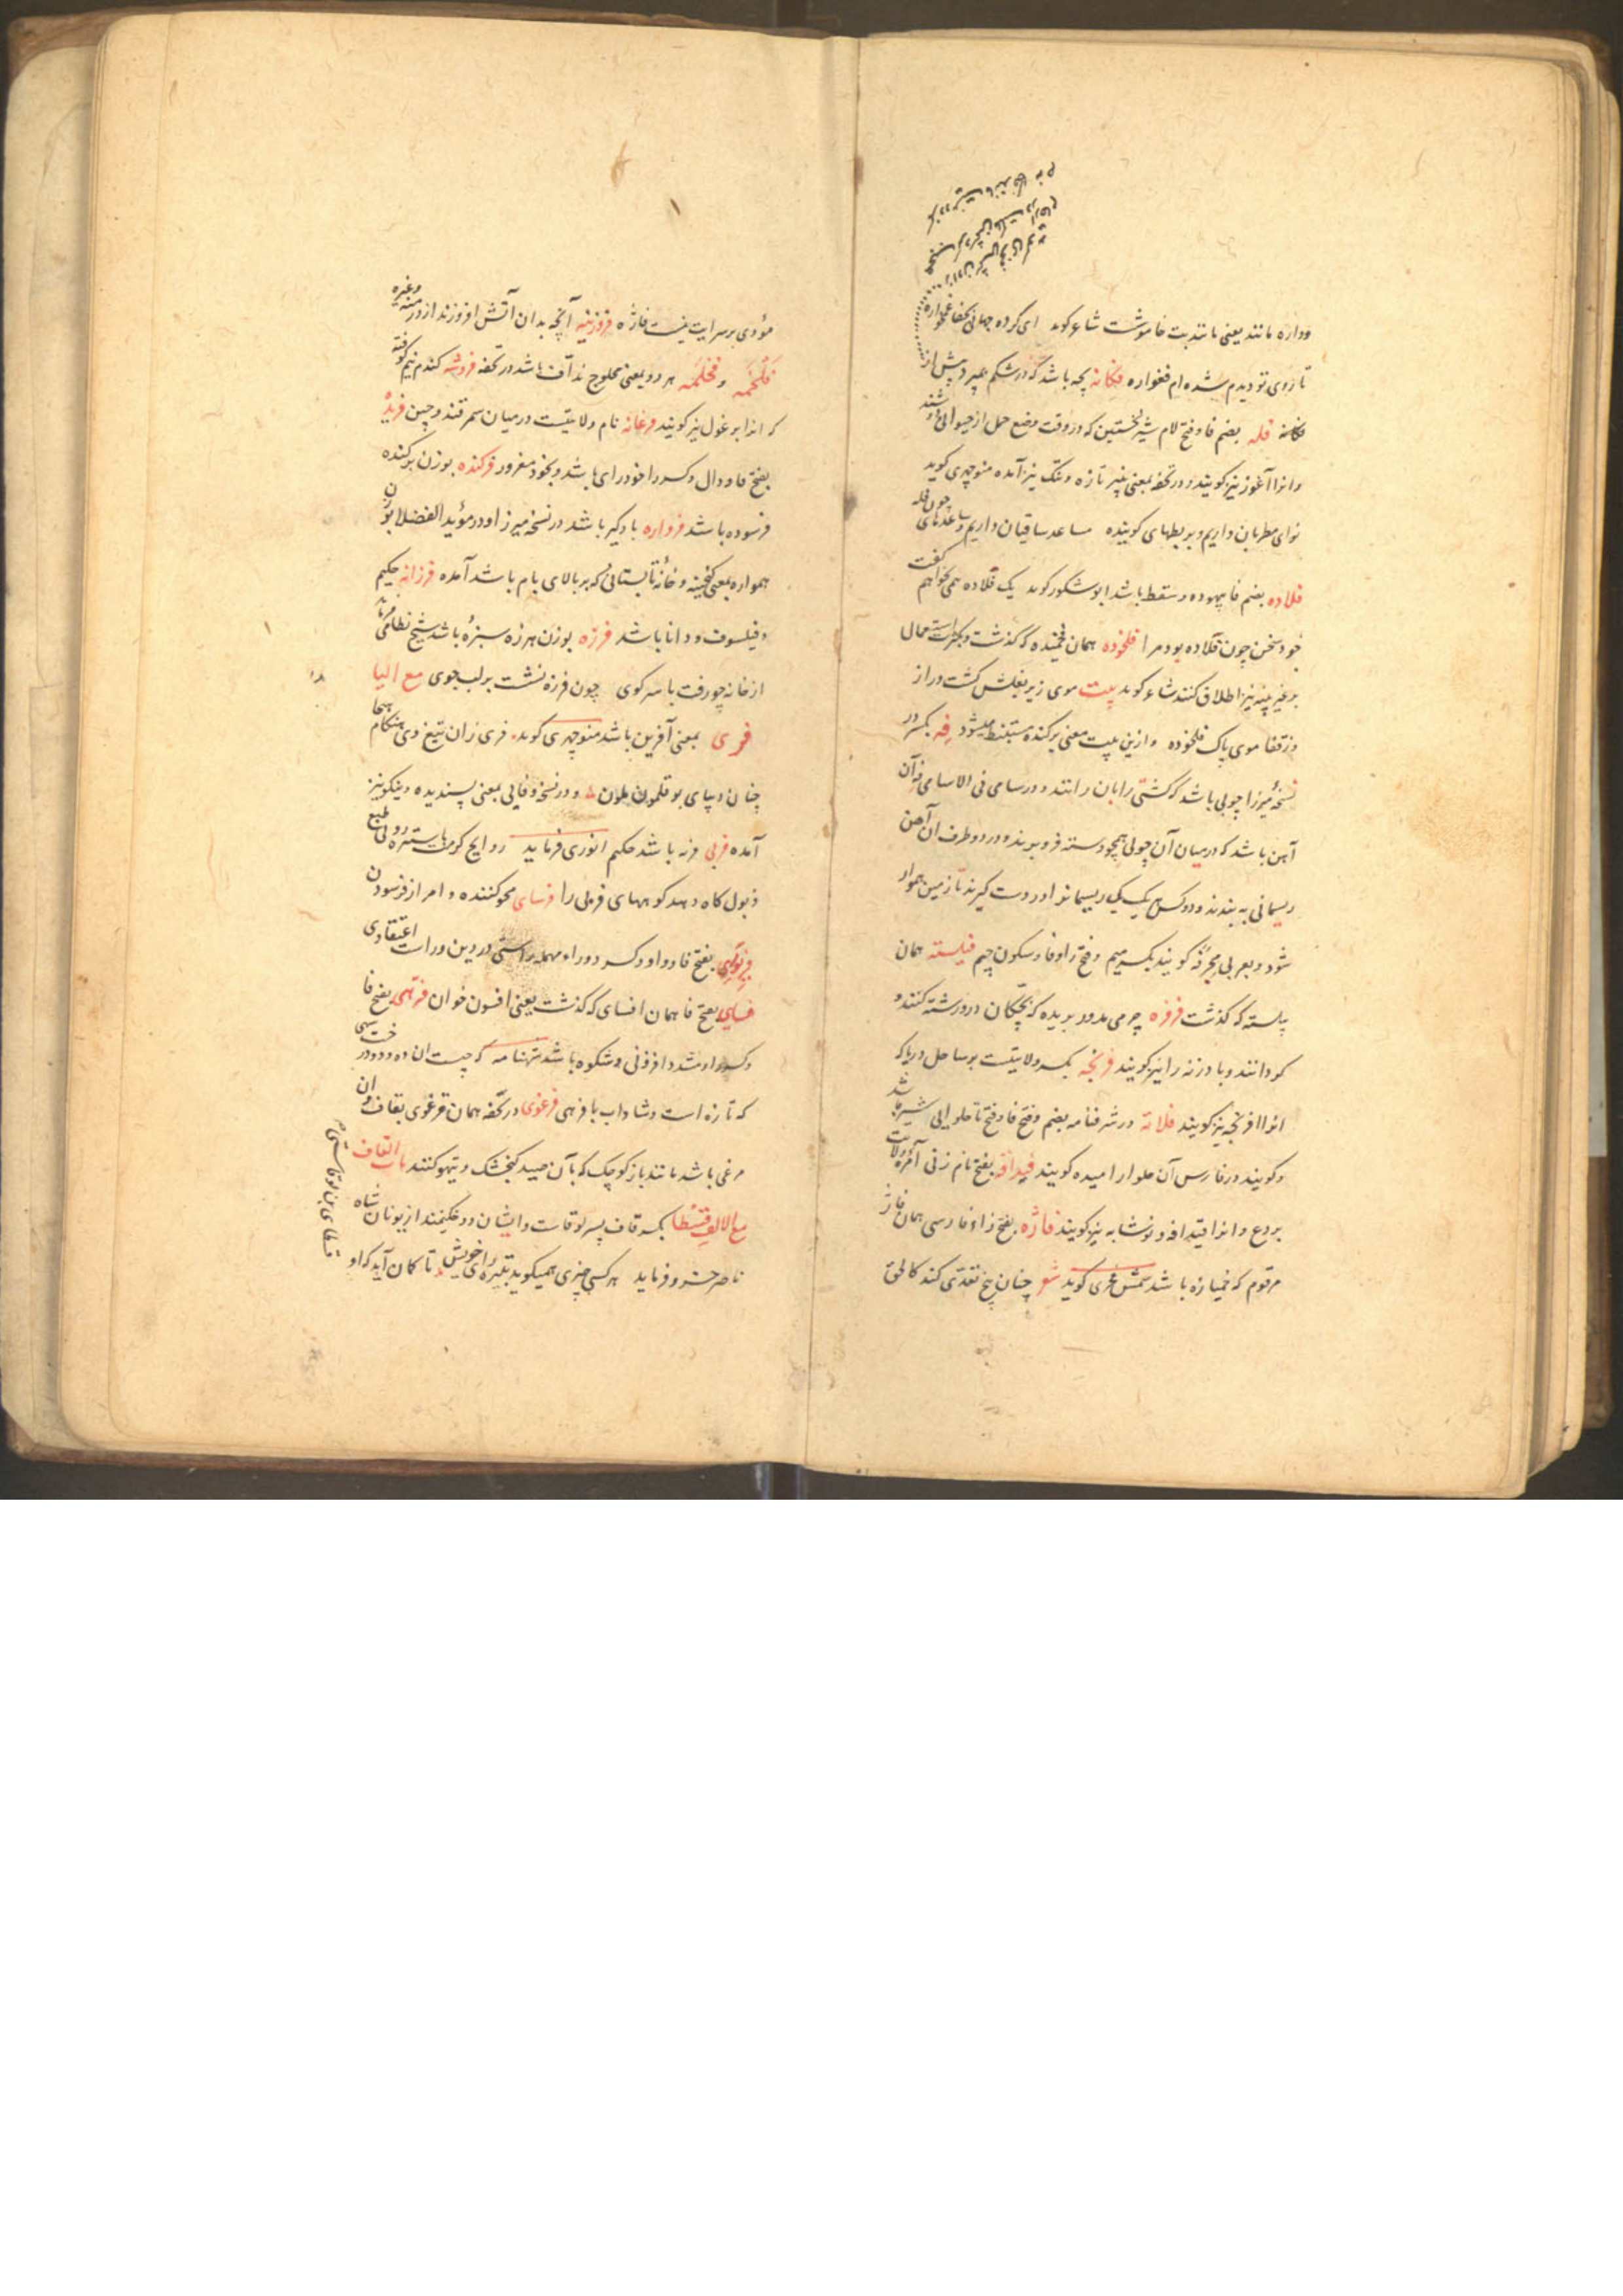 وواره مانند یعنی مانند بت خاموشت شاعر کوید ای کرده جهانی بکفا فغواره
تا روی تو دیدم شده ام فغواره فکانه بچه باشد که در شکم بمیرد پیش از
فله بضم فا و فتح لام شیر نخستین که در وقت وضع حمل از حیوانی دوشند
و انرا آغوز نیز کویند و در تحفه بمعنی پنیر تازه و تنک نیز آمده منوچهری کوید
نوای مطربان داریم و بربطهای کوینده مساعد ساقیان داریم و ساعدهای چون فله
فلاده بضم فا بیهوده و سقط باشد ابو شکور کوید یک فلاده همی نخواهم کفت
خود سخن چون فلاده بود مرا فلخوده همان فلخیده که کذشت و بکثرت استعمال
بر غیر پنبه نیز اطلاق کنند شاعر کوید بیت موی زیر بغلش کشت دراز
وز قفا موی پاک فلخوده و ازین بیت معنی برکنده مستنبط میشود فه بکسر در
نسخهٔ میرزا چوبی باشد که کشتی را بان رانند و در سامی فی الاسامی فه آن
آهن باشد که در میان آن چوبی همچو دسته فرو برند و در دو طرف ان آهن
ریسمانی به بندند و دو کس هر یک یک ریسمانرا در دست کیرند تا زمین هموار
شود و بعربی مجرفه کویند بکسر میم و فتح را و فا و سکون جیم فیلسته همان
پیلسته که کذشت فرفره چرمی مدور بریده که بچکان در و رشته کنند و
کردانند و بادزنه را نیز کویند فرنجه بکسر ولایتیست بر ساحل دریا که
انرا افرنجه نیز کویند فلاته در شرفنامه بضم و فتح فا و فتح تا حلوایی شیر باشد
و کویند در فارس آن حلوا را امیده کویند فیدافه بفتح نام زنی آمر ولایت
بردع و انرا قیدافه و نوشابه نیز کویند فاژه بفتح زاء فارسی همان فاژ
مرقوم که خمیازه باشد شمس فخری کوید شعر چنان بخ نقدی کند کالحق
مؤدی بر سرایت نیست فاژه فروزینه آنچه بدان آتش افروزند از درمنه و غیره
فلخمه و فخلمه هر دو بمعنی محلوج ندآفت باشد در تحفه فروشه کندم نیم کوفته
که انرا برغول نیز کویند فرغانه نام ولایتیست در میان سمرقند و چین فریده
بفتح فا و دال و کسر را خودرای باشد و بخود مغرور فرکنده بوزن برکنده
فرسوده باشد فرواره بادکیر باشد در نسخه میرزا و در مؤید الفضلا بوزن
همواره بمعنی کنجینه و خانهٔ تابستانی که بر بالای بام باشد آمده فرزانه حکیم
و فیلسوف و دانا باشد فرزه بوزن هرزه سبزه باشد شیخ نظامی فرماید
از خانه چو رفت با سر کوی چون فرزه نشست بر لب جوی مع الیا
فری بمعنی آفرین باشد منوچهری کوید فری زان تیغ وی هنکام هیجا
چنان دیبای بوقلمون ملون و در نسخه وفایی بمعنی پسندیده و نیکو نیز
آمده فربی فربه باشد حکیم انوری فرماید روایح کرمت با ستیزه رویی طبع
ذبول کاه دهد کوههای فربی را فرسای محو کننده و امر از فرسودن
فرنوری بفتح فا و واو و کسر دو راء مهمله راستی در دین و راست اعتقادی
فسای بفتح فا همان افسای که کذشت یعنی افسون خوان فرهی بفتح فا
و کسر راء مشدد افزونی و شکوه باشد شهنامه که چیست ان ده و دو درخت سهی
که تازه است و شاداب با فرهی فرغوی در تحفه همان قرغوی بقاف و ان
مرغی باشد مانند باز کوچک که بآن صید کنجشک و تیهو کنند باب القاف
مع الالف قسطا بکسر قاف پسر لوقاست و ایشان دو حکیمند از یونان شاه
ناصر خسرو فرماید هر کسی چیزی همیکوید بتیره رای خویش تا کمان آید کر او
قسطای بن لوقاستی